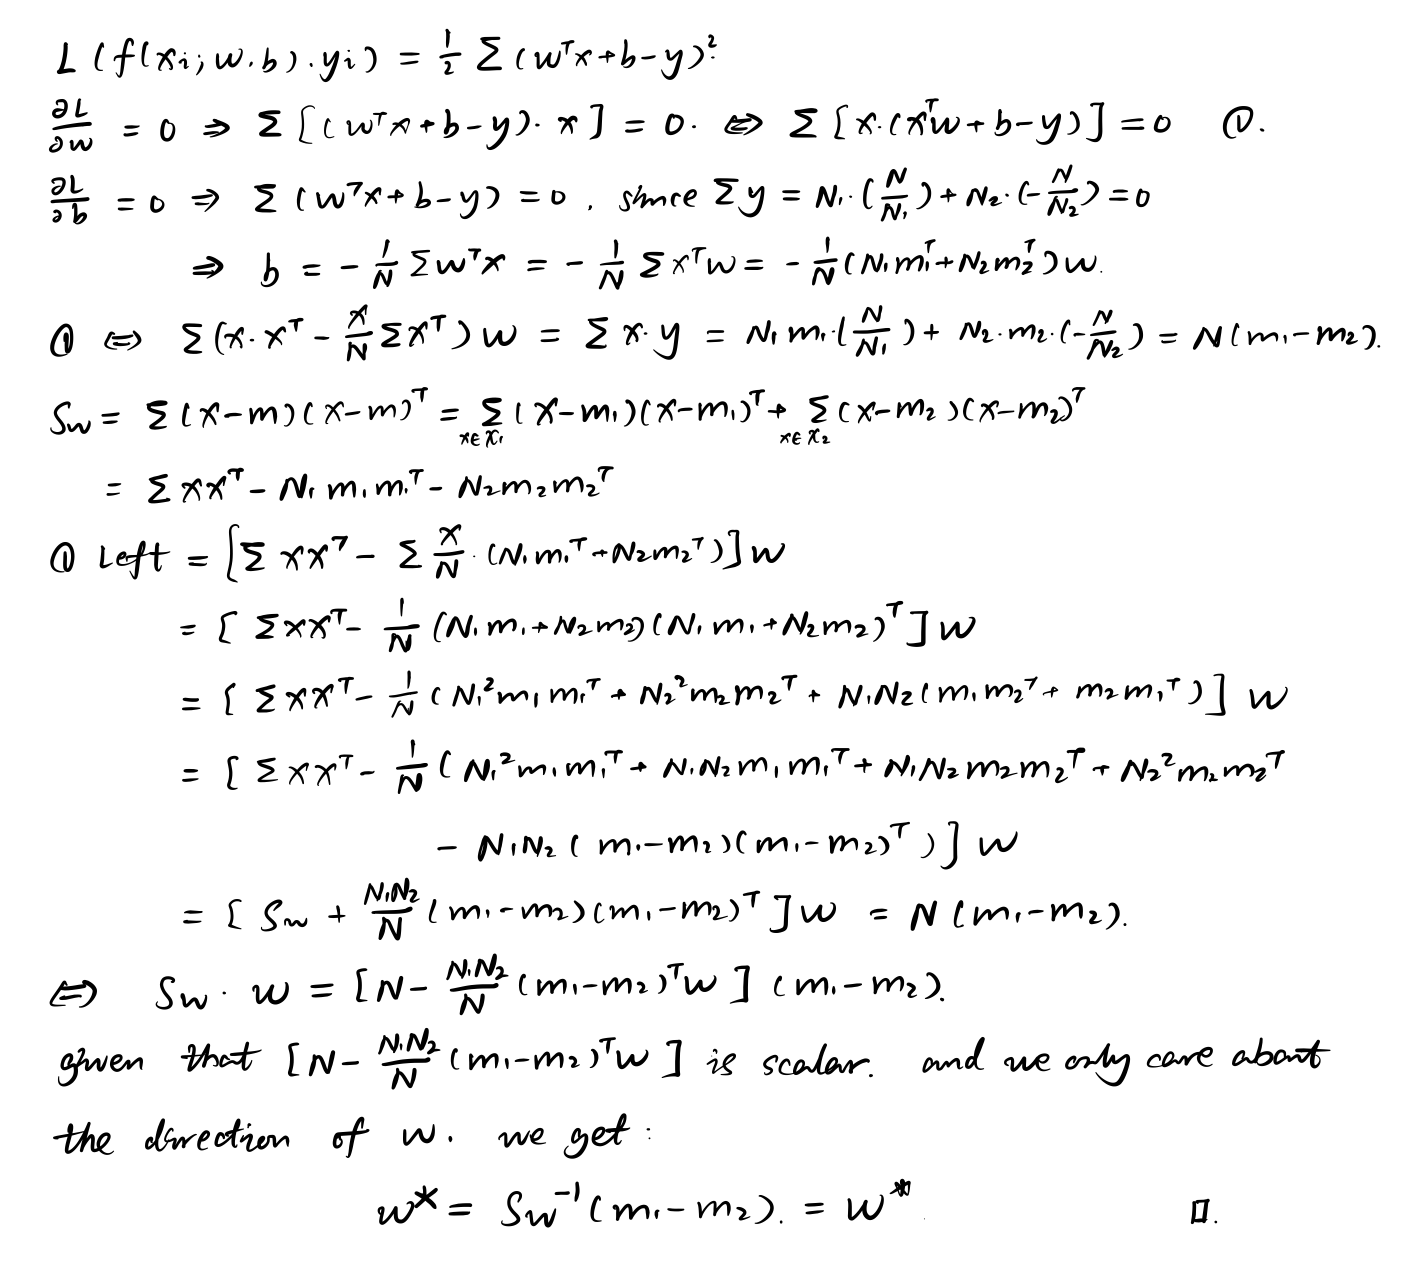 L(f(xi; w.b).yi) = 1/2 Σ(wᵀx+b-y)².
∂L/∂w = 0 ⇒ Σ[(wᵀx+b-y)·x] = 0. ⇔ Σ[x·(xᵀw+b-y)] = 0 ①.
∂L/∂b = 0 ⇒ Σ(wᵀx+b-y) = 0, since Σy = N₁·(N/N₁) + N₂·(-N/N₂) = 0
⇒ b = -1/N Σwᵀx = -1/N Σxᵀw = -1/N (N₁m₁ᵀ+N₂m₂ᵀ)w.
① ⇔ Σ(x·xᵀ - x/N Σxᵀ)w = Σx·y = N₁m₁·(N/N₁) + N₂·m₂·(-N/N₂) = N(m₁-m₂).
Sw = Σ(x-m)(x-m)ᵀ = Σ_{x∈X₁}(x-m₁)(x-m₁)ᵀ + Σ_{x∈X₂}(x-m₂)(x-m₂)ᵀ
= Σxxᵀ - N₁m₁m₁ᵀ - N₂m₂m₂ᵀ
① Left = [Σxxᵀ - Σ x/N·(N₁m₁ᵀ+N₂m₂ᵀ)]w
= [Σxxᵀ - 1/N (N₁m₁+N₂m₂)(N₁m₁+N₂m₂)ᵀ]w
= [Σxxᵀ - 1/N (N₁²m₁m₁ᵀ + N₂²m₂m₂ᵀ + N₁N₂(m₁m₂ᵀ + m₂m₁ᵀ)]w
= [Σxxᵀ - 1/N (N₁²m₁m₁ᵀ + N₁N₂m₁m₁ᵀ + N₁N₂m₂m₂ᵀ + N₂²m₂m₂ᵀ
- N₁N₂(m₁-m₂)(m₁-m₂)ᵀ)]w
= [Sw + N₁N₂/N (m₁-m₂)(m₁-m₂)ᵀ]w = N(m₁-m₂).
⇔ Sw·w = [N - N₁N₂/N (m₁-m₂)ᵀw](m₁-m₂).
given that [N - N₁N₂/N (m₁-m₂)ᵀw] is scalar. and we only care about
the direction of w. we get:
w* = Sw⁻¹(m₁-m₂). = w* □.